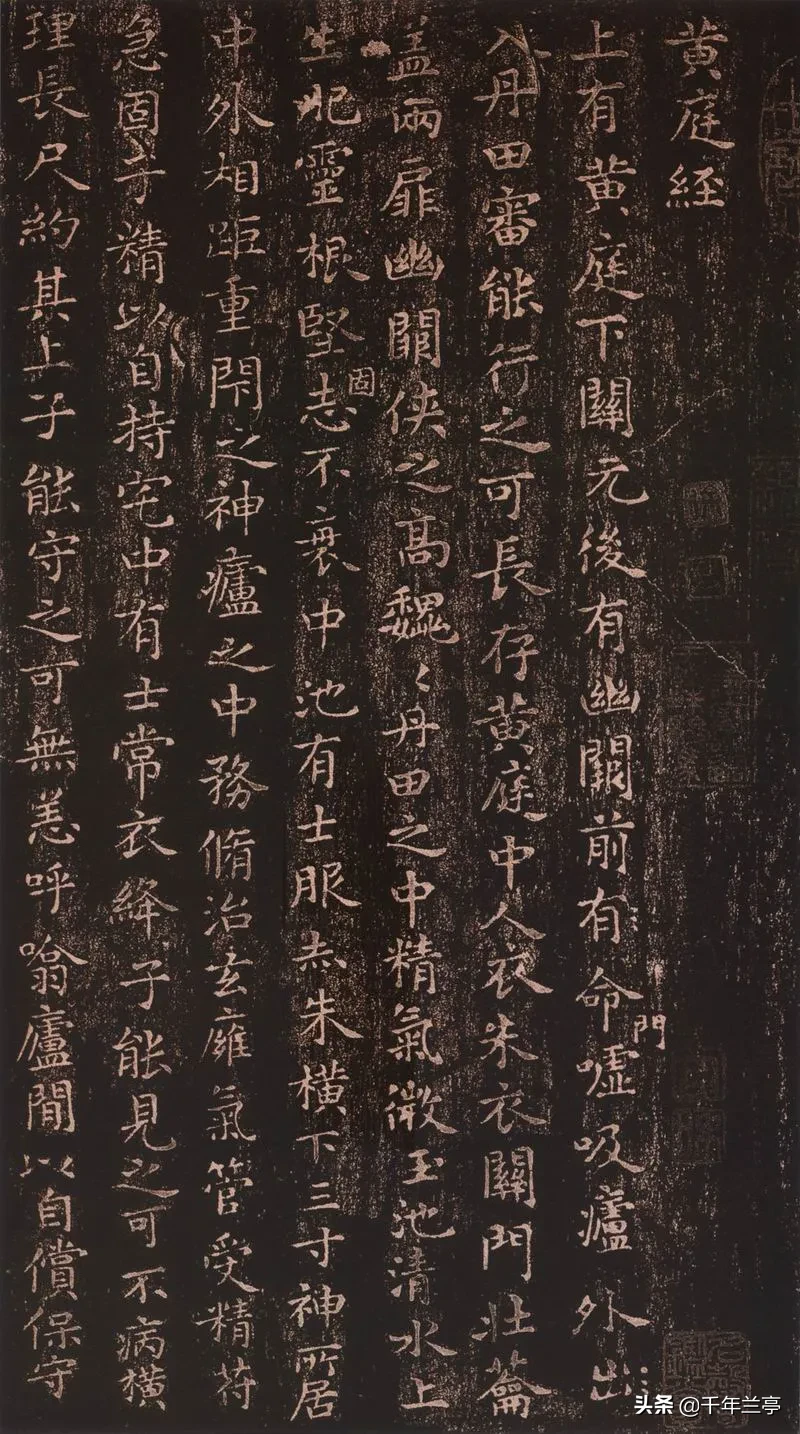 黄庭経
上有黄庭下關元後有幽闕前有命門嘘吸廬外出
入丹田審能行之可長存黄庭中人衣朱衣關門壮蘥
盖兩扉幽闕侠之高魏〻丹田之中精氣微玉池清水上
生肥靈根堅固志不衰中池有士服赤朱横下三寸神所居
中外相距重閇之神廬之中務脩治玄廱氣管受精苻
急固子精以自持宅中有士常衣絳子能見之可不病横
理長尺約其上子能守之可無恙呼噏廬間以自償保守
头条 @千年兰亭